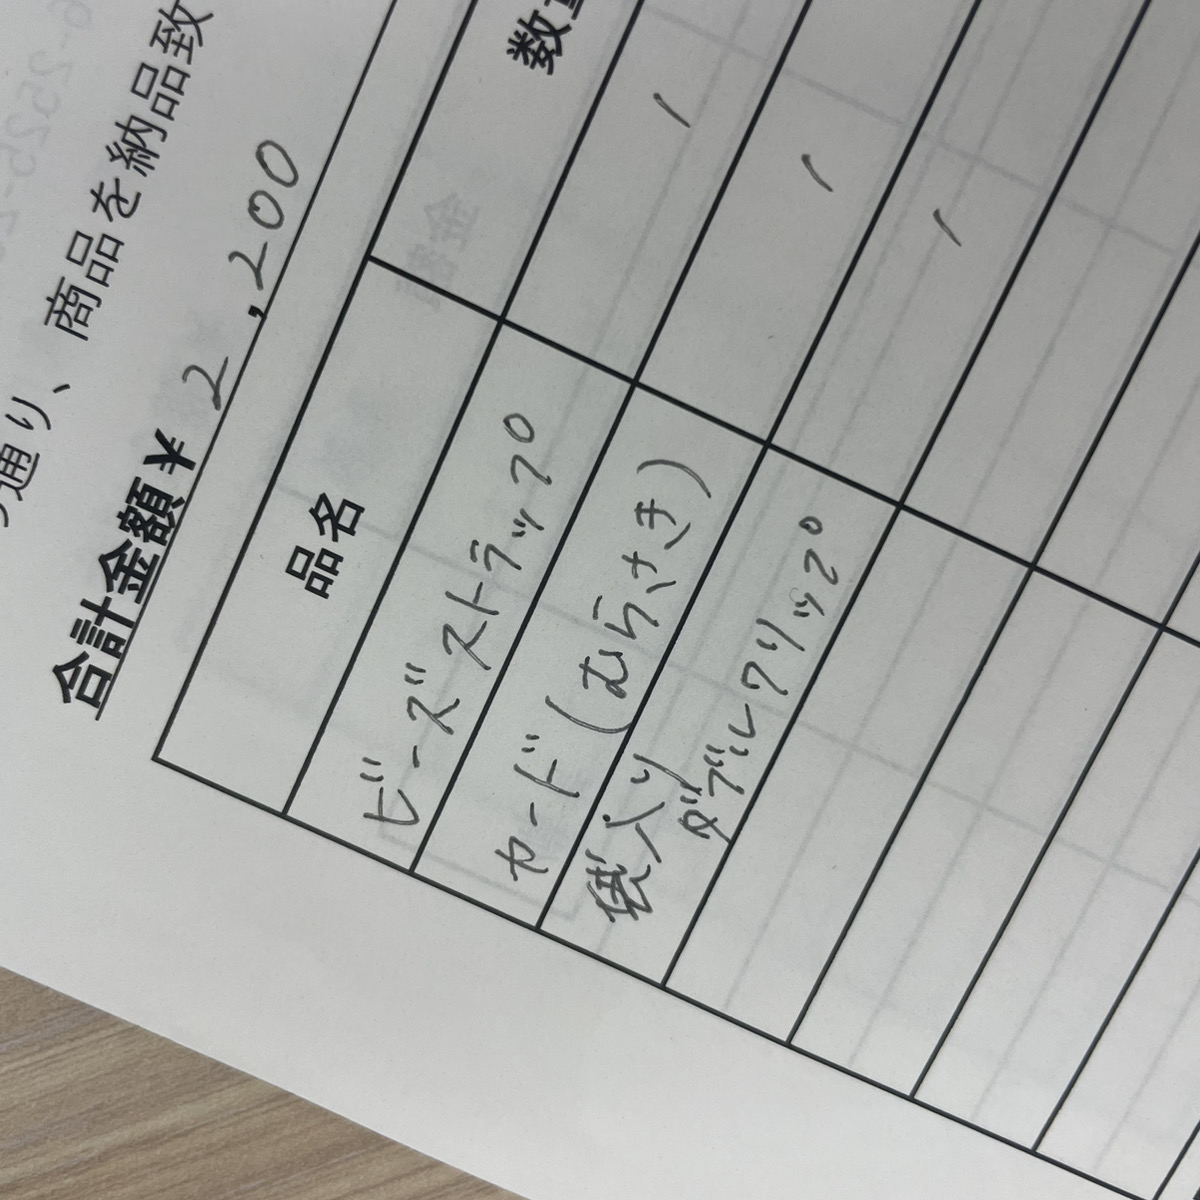 通り、商品を納品致
合計金額¥ 2,200
品名 数量
ビーズストラップ 1
カード(むらさき) 1
袋入り ダブルクリップ 1